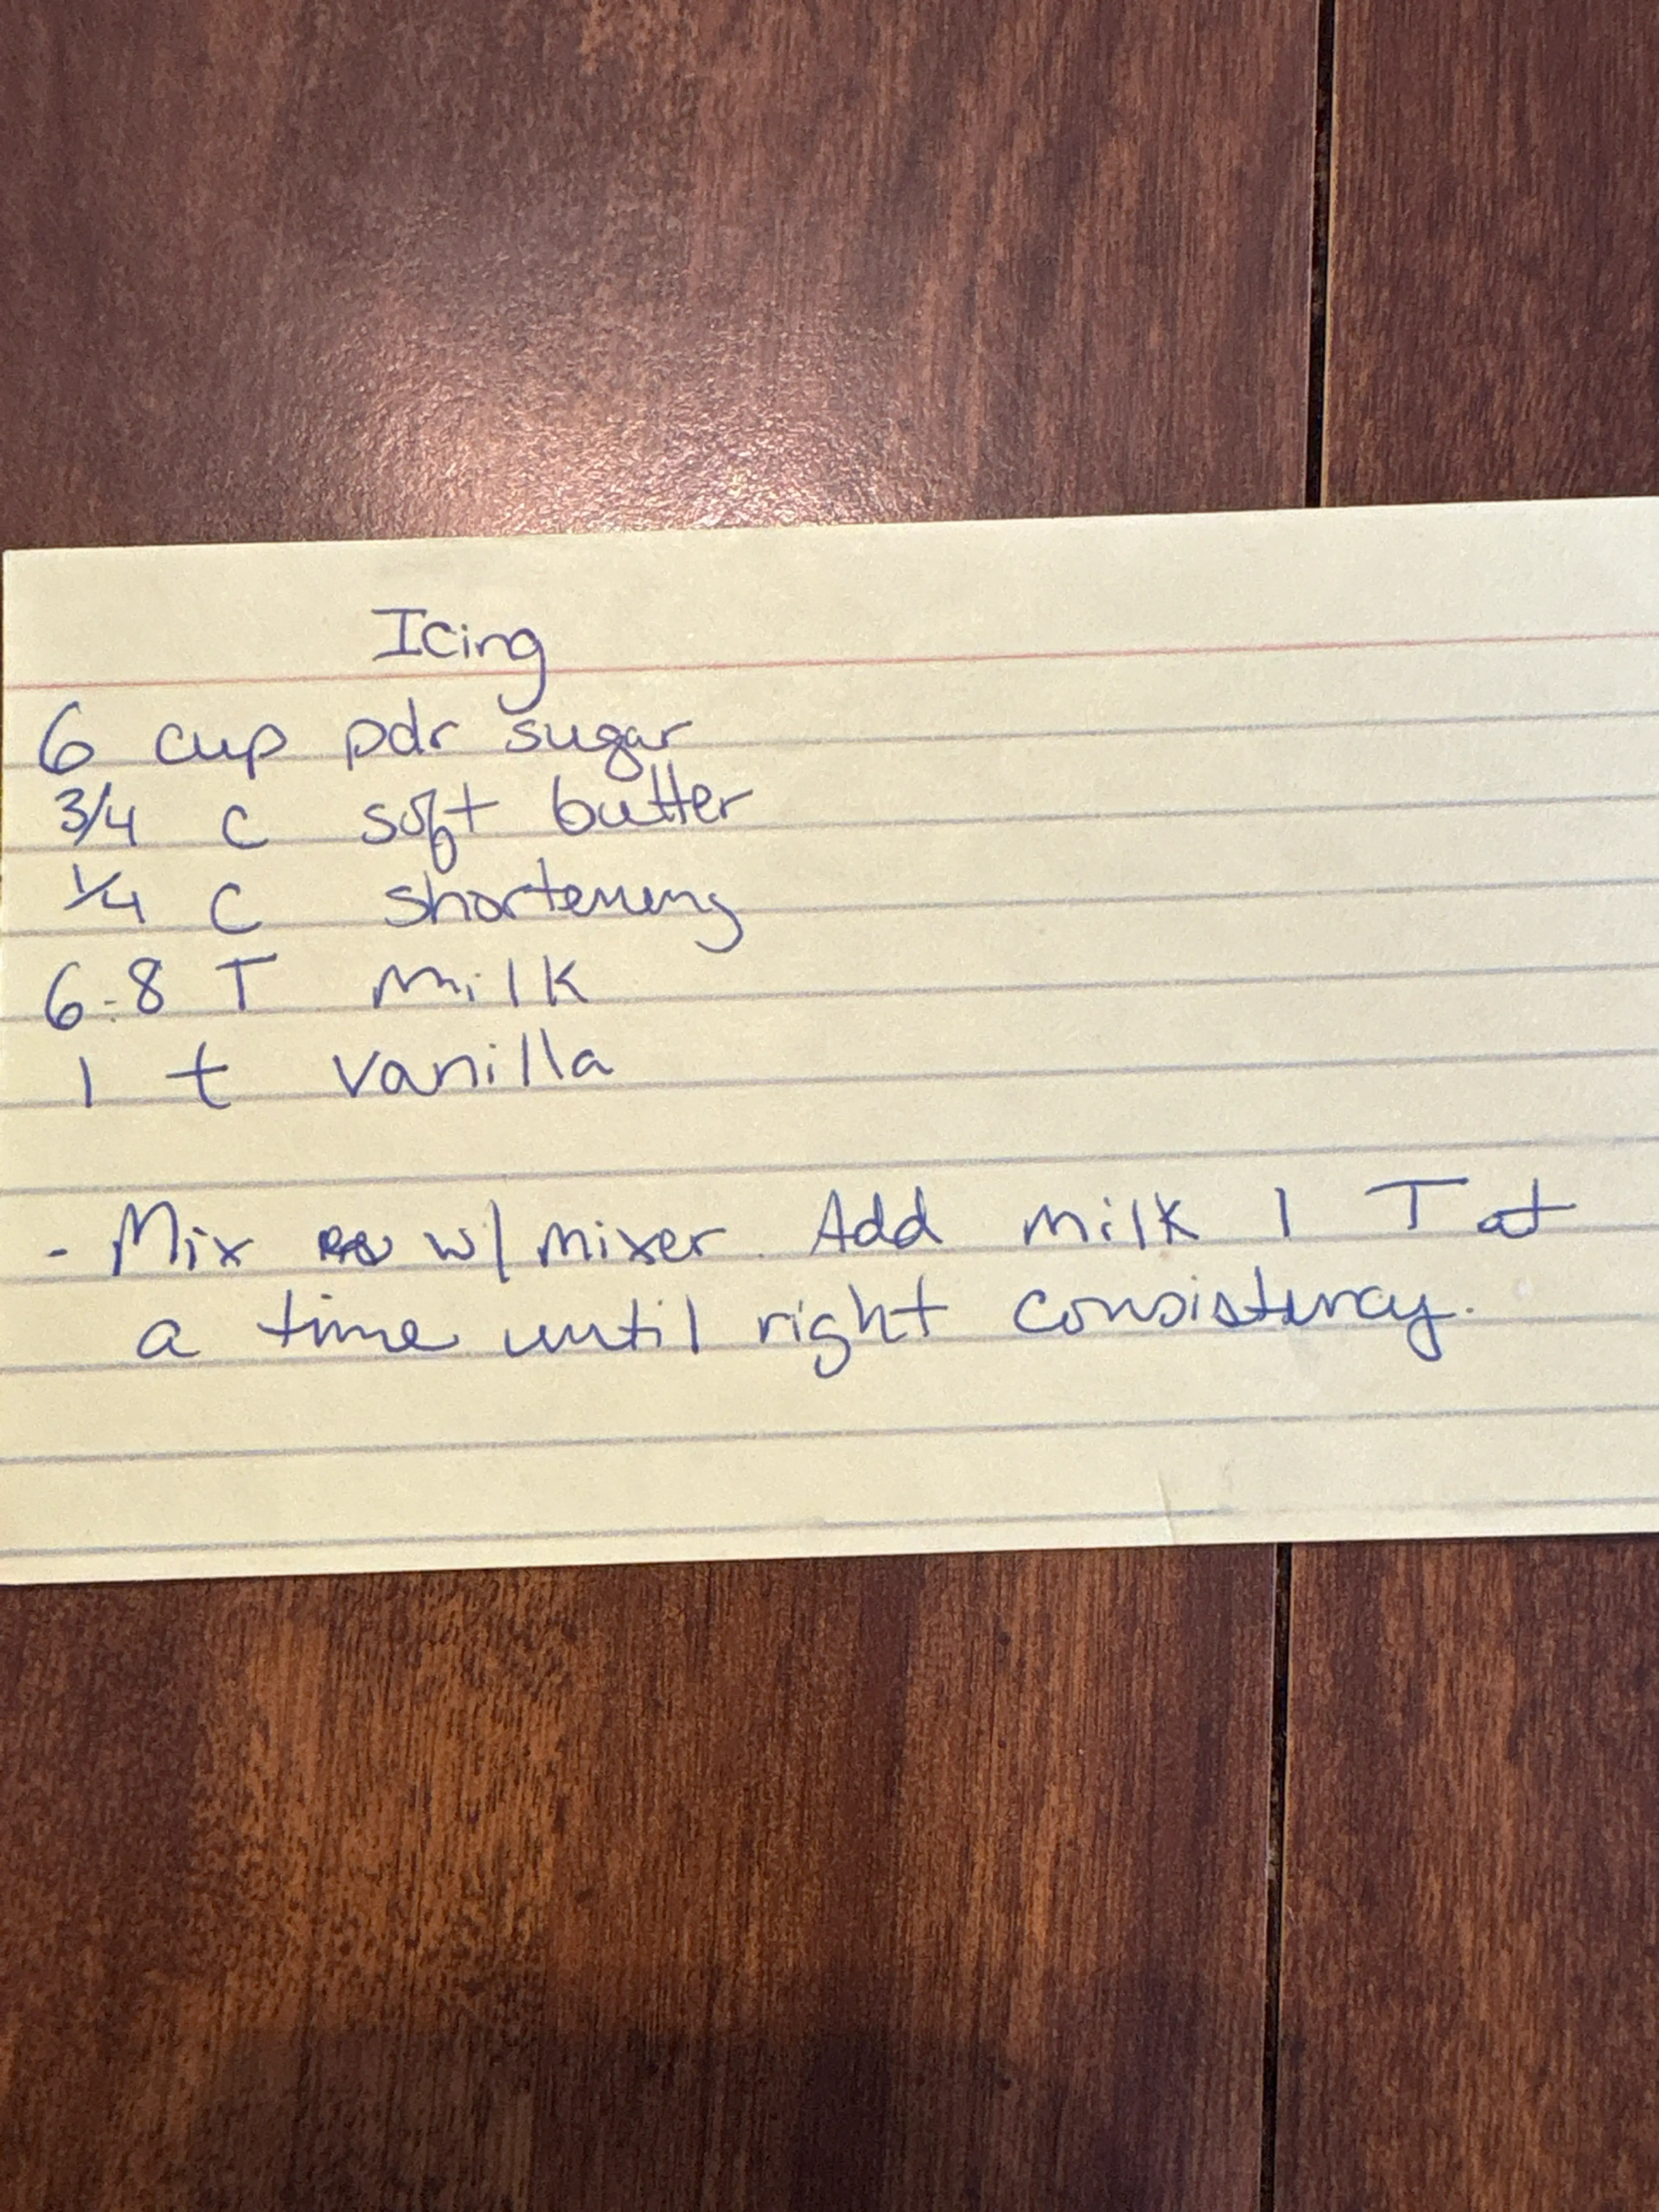 Icing
6 cup pdr sugar
3/4 c soft butter
1/4 c shortening
6-8 T milk
1 t vanilla
- Mix w/ mixer. Add milk 1 T at
a time until right consistency.